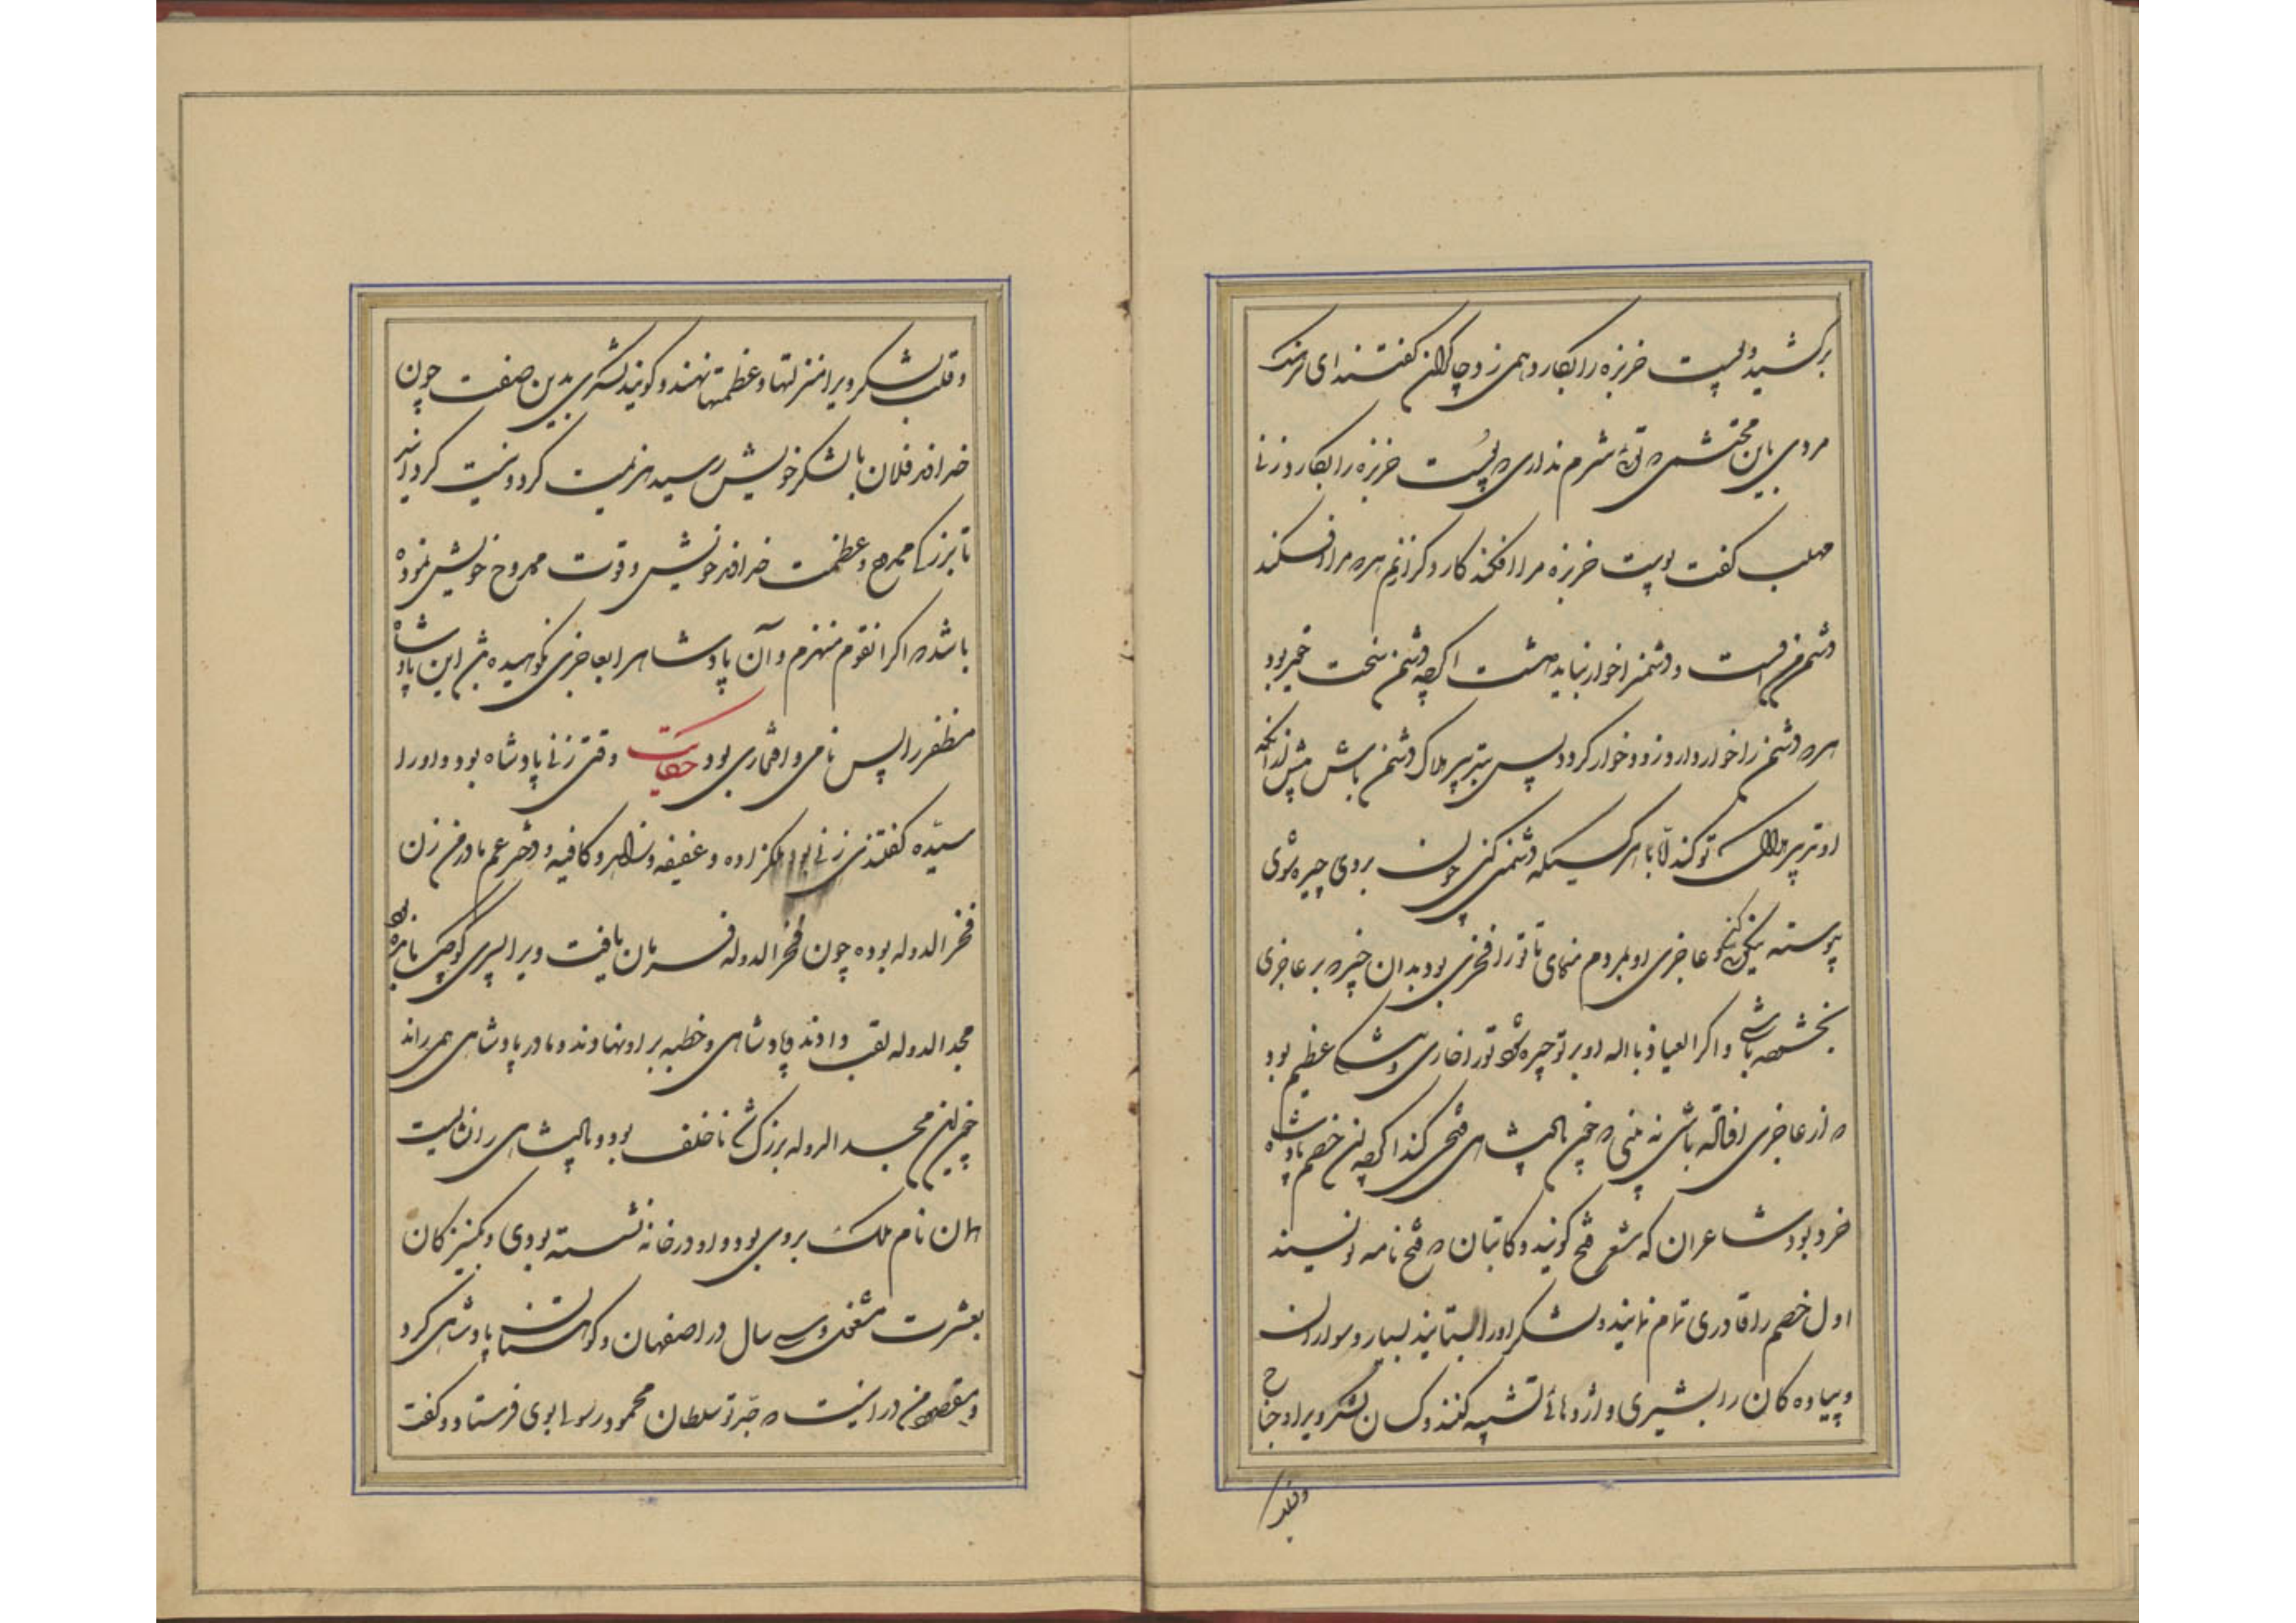 برکشید و پوست خربزه را بکارد همی زد چاکران گفتند ای سرهنگ
مردی باین محتشمی که توئی شرم نداری که پوست خربزه را بکارد زنی
مهلب گفت پوست خربزه مرا افکند کارد کرا زنم هر که مرا افکند
دشمن من اوست و دشمنرا خوار نباید داشت اگرچه دشمن سخت حقیر بود
هر که دشمن را خوار دارد زود خوار گردد پس بتدبیر هلاک دشمن باش پیش از آنکه
او تدبیر هلاک تو کند الا با هر کسیکه دشمنی کنی چون بروی چیره شوی
پیوسته عاجزی او بمردم منمای تا تو را فخری بود بدان خیره بر عاجزی
باشی و اگر العیاذ بالله او بر تو چیره شود تو را عظیم بود
که از عاجزی افتاده باشی نه بینی که چون پادشاهی فتحی کند اگرچه آن خصم پادشاه
خرد بود شاعران که شعر فتح گویند و کاتبان که فتح نامه نویسند
اول خصم را قادری تمام نهایند و لشکر او را بستایند بسیار و سواران
و پیاده کان را بشیری و اژدهائی تشبیه کنند و لشکر ویرا و جناح
وقلب
و قلب لشکر ویرا منزلتها و عظمتها نهند و گویند لشکری بدین صفت چون
خداوند فلان با لشکر خویش رسید هزیمت کرد و نیست گردانید
تا بزرگی ممدوح و عظمت خداوند خویش و قوت ممدوح خویش نموده
باشد که اگر انقوم منهزم و آن پادشاه را بعاجزی نکوهیده این پادشاه
مظفر را پس نامی و افتخاری بود حکایت وقتی زنی پادشاه بود و او را
سیّده گفتندی زنی بود ملکزاده و عفیفه و زاهد و کافیه و دختر عم مادر من زن
فخر الدوله بوده چون فخر الدوله فرمان یافت ویرا پسری کوچک بازمانده
مجد الدوله لقب دادند و پادشاهی و خطبه بر او نهادند و مادر پادشاهی همی راند
چون این مجد الدوله بزرگ شد ناخلف بود و پادشاهی را نشایست
همان نام ملک بروی بود و او در خانه نشسته بودی و بکنیزکان
بعشرت مشغول و سی سال در اصفهان و کوهستان پادشاهی کرد
و مقصود من در اینست که جدّ تو سلطان محمود رسولی بوی فرستاد و گفت